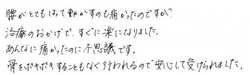 腰がとてもはって動かすのも痛かったのですが
治療のおかげで、すぐに楽になりました。
あんなに痛かったのに不思議です。
骨をボキボキすることもなく行われるので安心して受けられました。